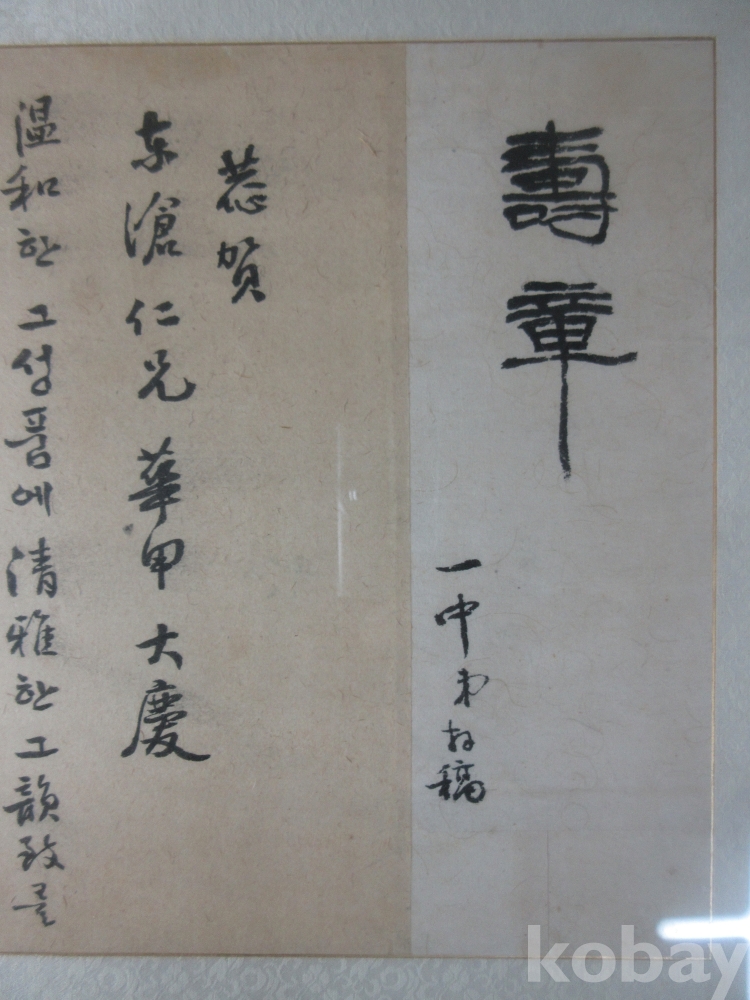 壽章
一中弟 稿
恭賀
东滄仁兄華甲大慶
温和한 그 성품에 清雅한 그 韻致를
kobay